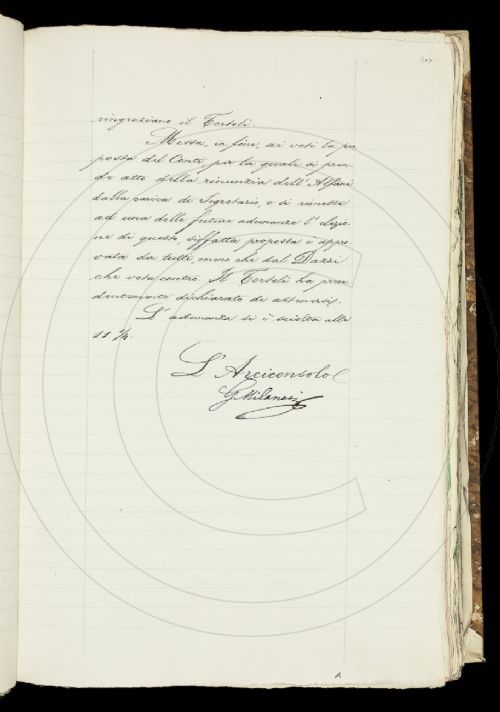 ringraziano il Tortoli.
Messa, in fine, ai voti la pro-
posta del Conti, per la quale si pren-
de atto della rinunzia dell'Alfani
dalla carica di Segretario, e si rimette
ad una delle future adunanze l'elezio-
ne di questo, siffatta proposta è appro-
vata da tutti, meno che dal Dazzi
che vota contro. Il Tortoli ha prece-
dentemente dichiarato di astenersi.
L'adunanza si è sciolta alle
11 1/4.
L'Arciconsolo
G Milanesi